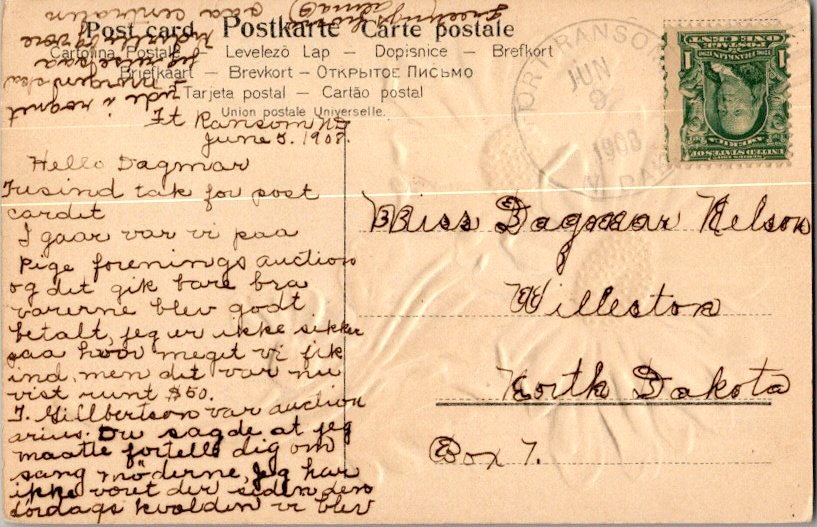 Post card Postkarte Carte postale
Cartolina Postale – Levelező Lap – Dopisnice – Brefkort
Briefkaart – Brevkort – Открытое Письмо
Tarjeta postal – Cartão postal
Union postale Universelle.
Ft Ransom ND
June 5. 1908.
Hello Dagmar
Tusind tak for post
cardet
I gaar var vi paa
Pige forenings auction
og det gik bare bra
varerne blev godt
betalt, jeg er ikke sikker
paa hvor meget vi fik
ind, men det var nu
vist runt $50.
T. Gillbertson var auction
arius. Du sagde at jeg
maatte fortelle dig om
sang möderne, Jeg har
ikke voret der siden den
lördags kvelden vi blev
ude i regnet
centralen
Miss Dagmar Nelson
Williston
North Dakota
Box 7.
FORT RANSOM
JUN
9
1908
N. DAK.
UNITED STATES OF
AMERICA
FRANKLIN
POSTAGE
ONE CENT
1 1